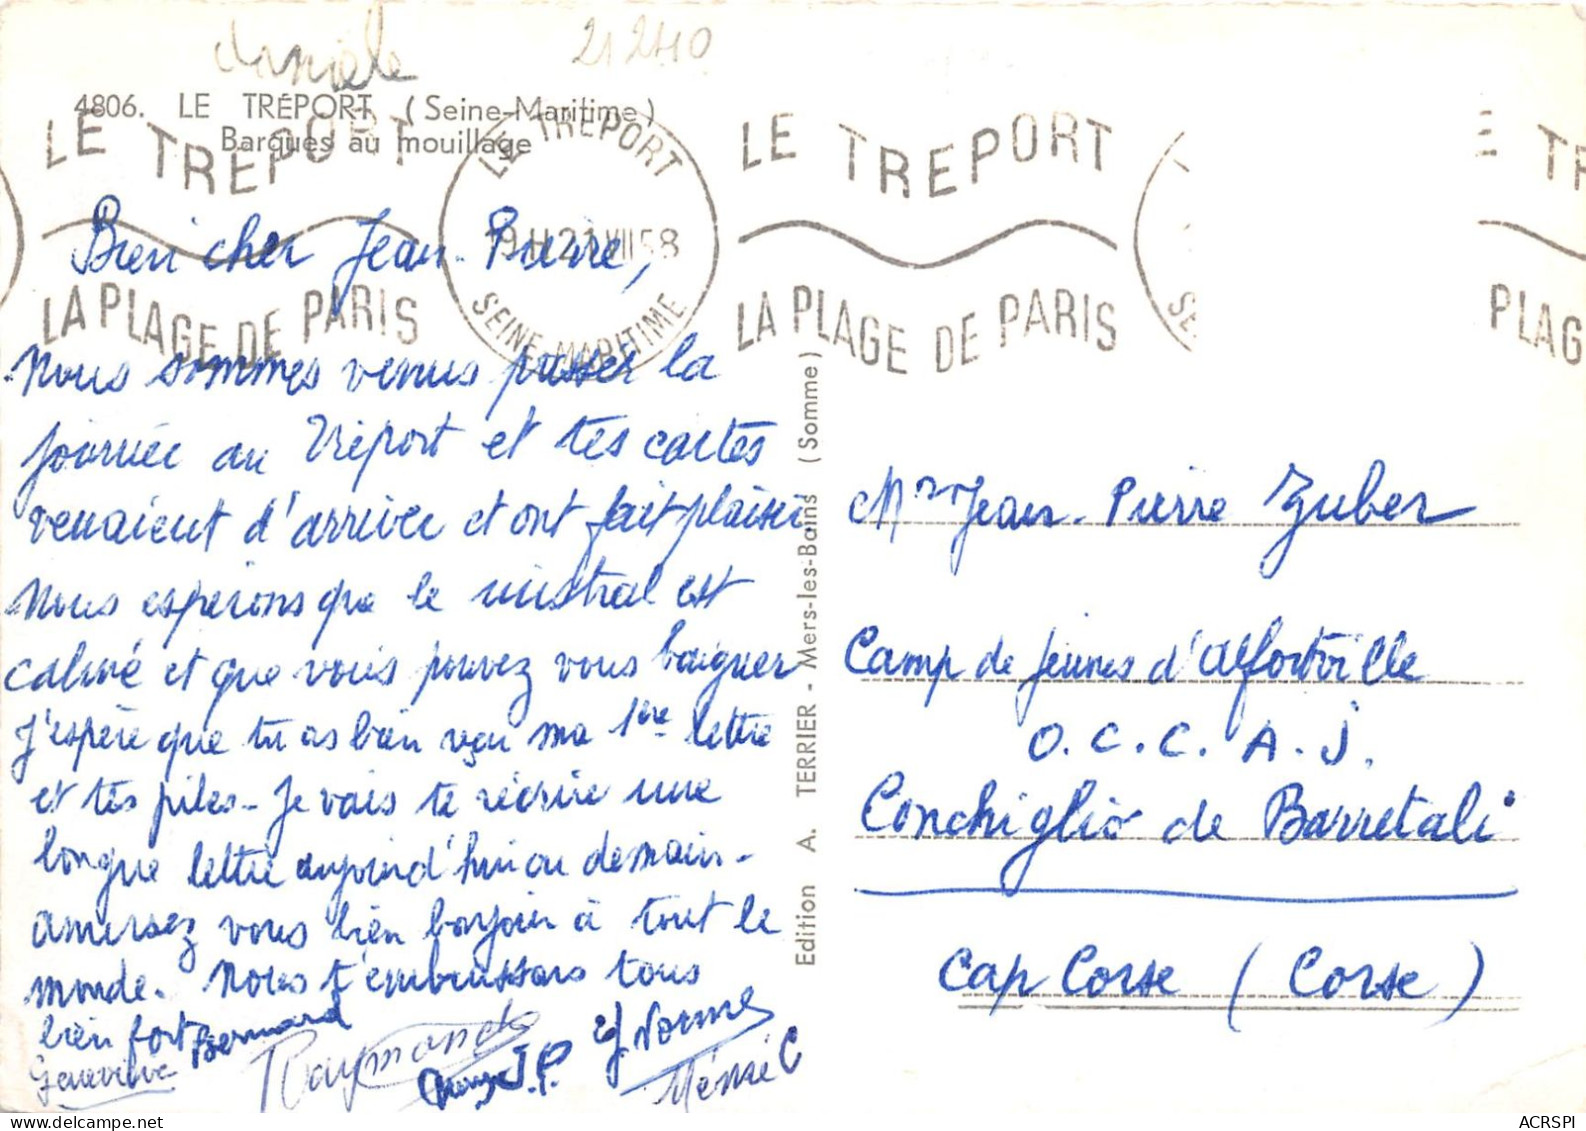 Danièle
212410
4806. LE TRÉPORT (Seine-Maritime)
Barques au mouillage
LE TREPORT
LA PLAGE DE PARIS
LE TREPORT
19H 21 VII 58
SEINE-MARITIME
LE TREPORT
LA PLAGE DE PARIS
E TR
PLAG
Bien cher Jean-Pierre,
Nous sommes venus passer la
journée au Tréport et tes cartes
venaient d'arriver et ont fait plaisir
Nous espérons que le mistral est
calmé et que vous pouvez vous baigner
J'espère que tu as bien reçu ma 1ère lettre
et tes piles - Je vais te réécrire une
longue lettre aujourd'hui ou demain -
amusez vous bien bonjour à tout le
monde. Nous t'embrassons tous
bien fort Bernard
Geneviève Raymonde J.P. J. Norme
Edition A. TERRIER - Mers-les-Bains (Somme)
Mr Jean-Pierre Zuber
Camp de Jeunes d'Alfortville
O.C.C.A.J.
Conchiglio de Barretali
Cap Corse (Corse)
ACRSPI